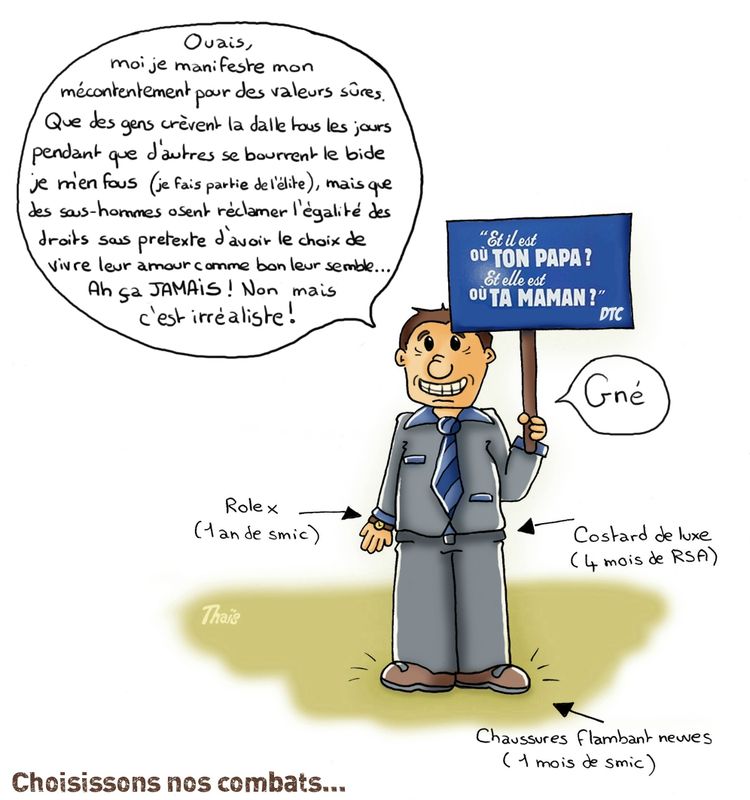 Ouais,
moi je manifeste mon
mécontentement pour des valeurs sûres.
Que des gens crèvent la dalle tous les jours
pendant que d'autres se bourrent le bide
je m'en fous (je fais partie de l'élite), mais que
des sous-hommes osent réclamer l'égalité des
droits sous pretexte d'avoir le choix de
vivre leur amour comme bon leur semble...
Ah ça JAMAIS ! Non mais
c'est irréaliste !
"Et il est
OÙ TON PAPA ?
Et elle est
OÙ TA MAMAN ?"
DTC
Gné
Rolex
(1 an de smic)
Costard de luxe
(4 mois de RSA)
Thaïs
Chaussures flambant neuves
(1 mois de smic)
Choisissons nos combats...